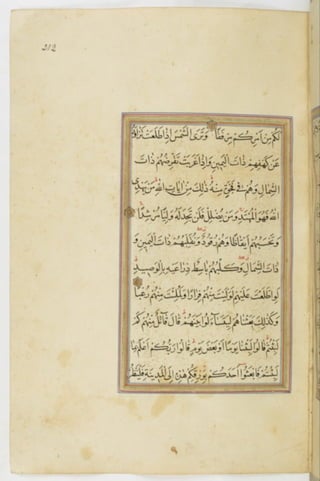 212
لكم من امركم مرفقا وترى الشمس اذا طلعت تزاور
عن كهفهم ذات اليمين واذا غربت تقرضهم ذات
الشمال وهم في فجوة منه ذلك من ايات الله من يهدي
الله فهو المهتد ومن يضلل فلن تجد له وليا مرشدا
وتحسبهم ايقاظا وهم رقود ونقلبهم ذات اليمين و
ذات الشمال وكلبهم باسط ذراعيه بالوصيد
لو اطلعت عليهم لوليت منهم فرارا ولملئت منهم رعبا
وكذلك بعثناهم ليتساءلوا بينهم قال قائل منهم كم
لبثتم قالوا لبثنا يوما او بعض يوم قالوا ربكم اعلم بما
لبثتم فابعثوا احدكم بورقكم هذه الى المدينة فلينظر